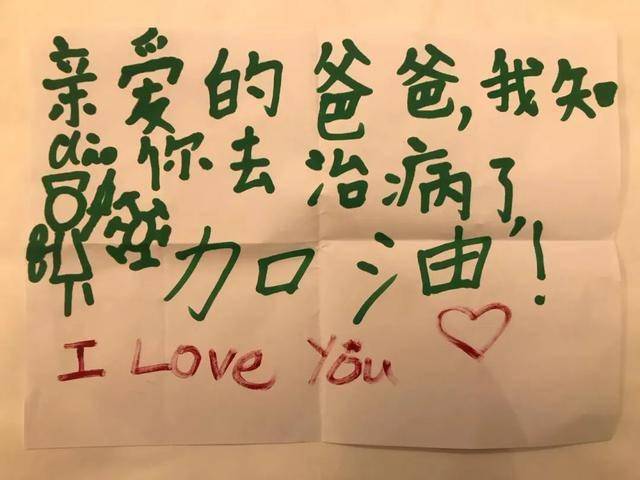 亲爱的爸爸,我知
dào你去治病了,
加油!
I Love You